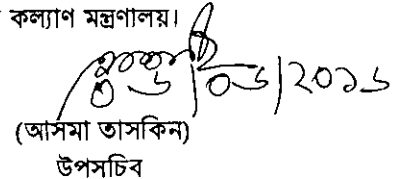 কল্যাণ মন্ত্রণালয়।
০৬/০৬/২০১৬
(আসমা তাসকিন)
উপসচিব